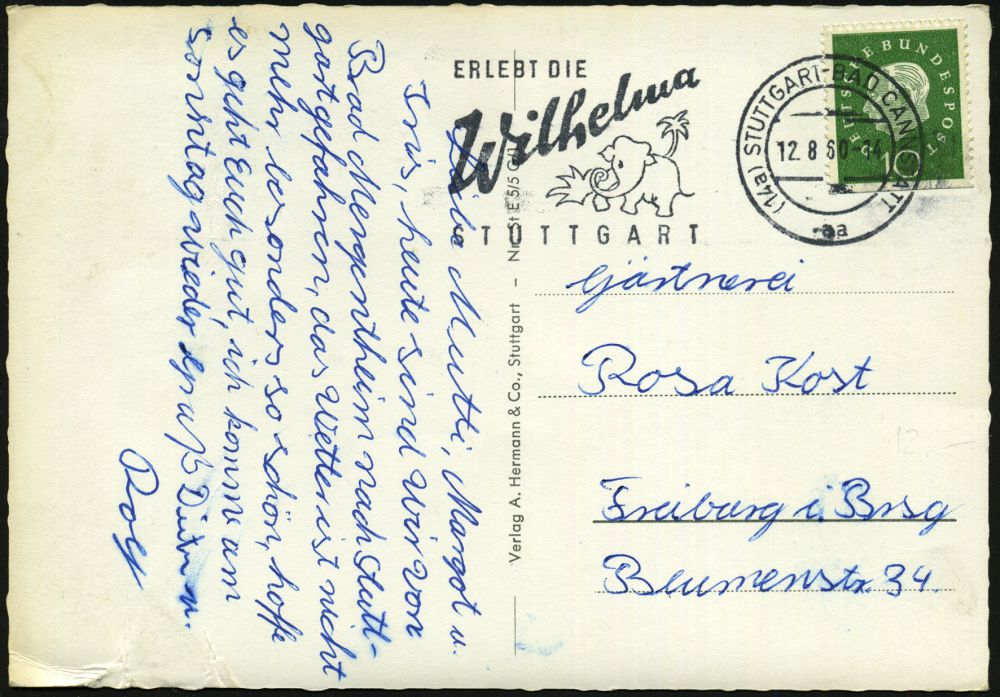 Liebe Mutti, Margot u.
Iris, heute sind wir von
Bad Mergentheim nach Stutt-
gart gefahren, das Wetter ist nicht
mehr besonders so schön, hoffe
es geht Euch gut, ich komme am
Sonntag wieder Gruß Dein u.
Rolf
ERLEBT DIE
Wilhelma
STUTTGART
(14a) STUTTGART-BAD CANNSTATT
12.8.60-14
aa
DEUTSCHE BUNDESPOST
10
Verlag A. Hermann & Co., Stuttgart – Nr. St E 5/5
Gärtnerei
Rosa Kost
Freiburg i. Brsg
Blumenstr. 34.
12 –